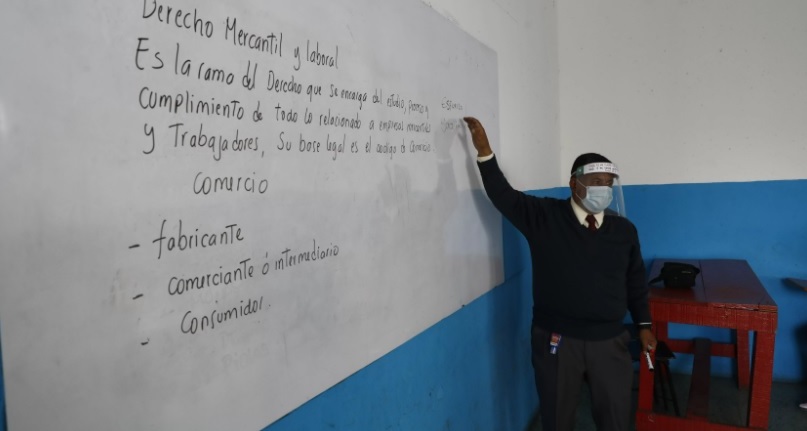 Derecho Mercantil y laboral
Es la rama del Derecho que se encarga del estudio, y
cumplimiento de todo lo relacionado a empresas mercantiles
y Trabajadores, Su base legal es el codigo d Comercio
comercio
- fabricante
- comerciante ó intermediario
- Consumidor.